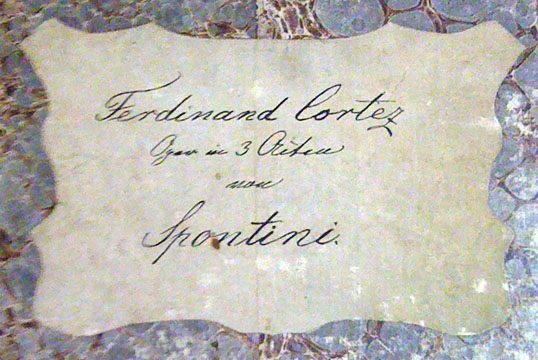 Ferdinand Cortez
Oper in 3 Akten
von
Spontini.